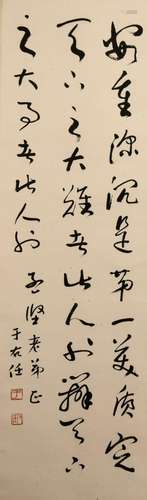 安重深沉是第一美质定
天下之大难者此人也辩天下
之大事者此人也
志坚老弟正
于右任